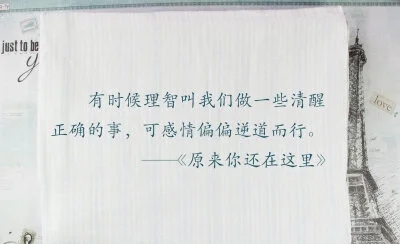 just to be
y
有时候理智叫我们做一些清醒
正确的事，可感情偏偏逆道而行。
——《原来你还在这里》
love